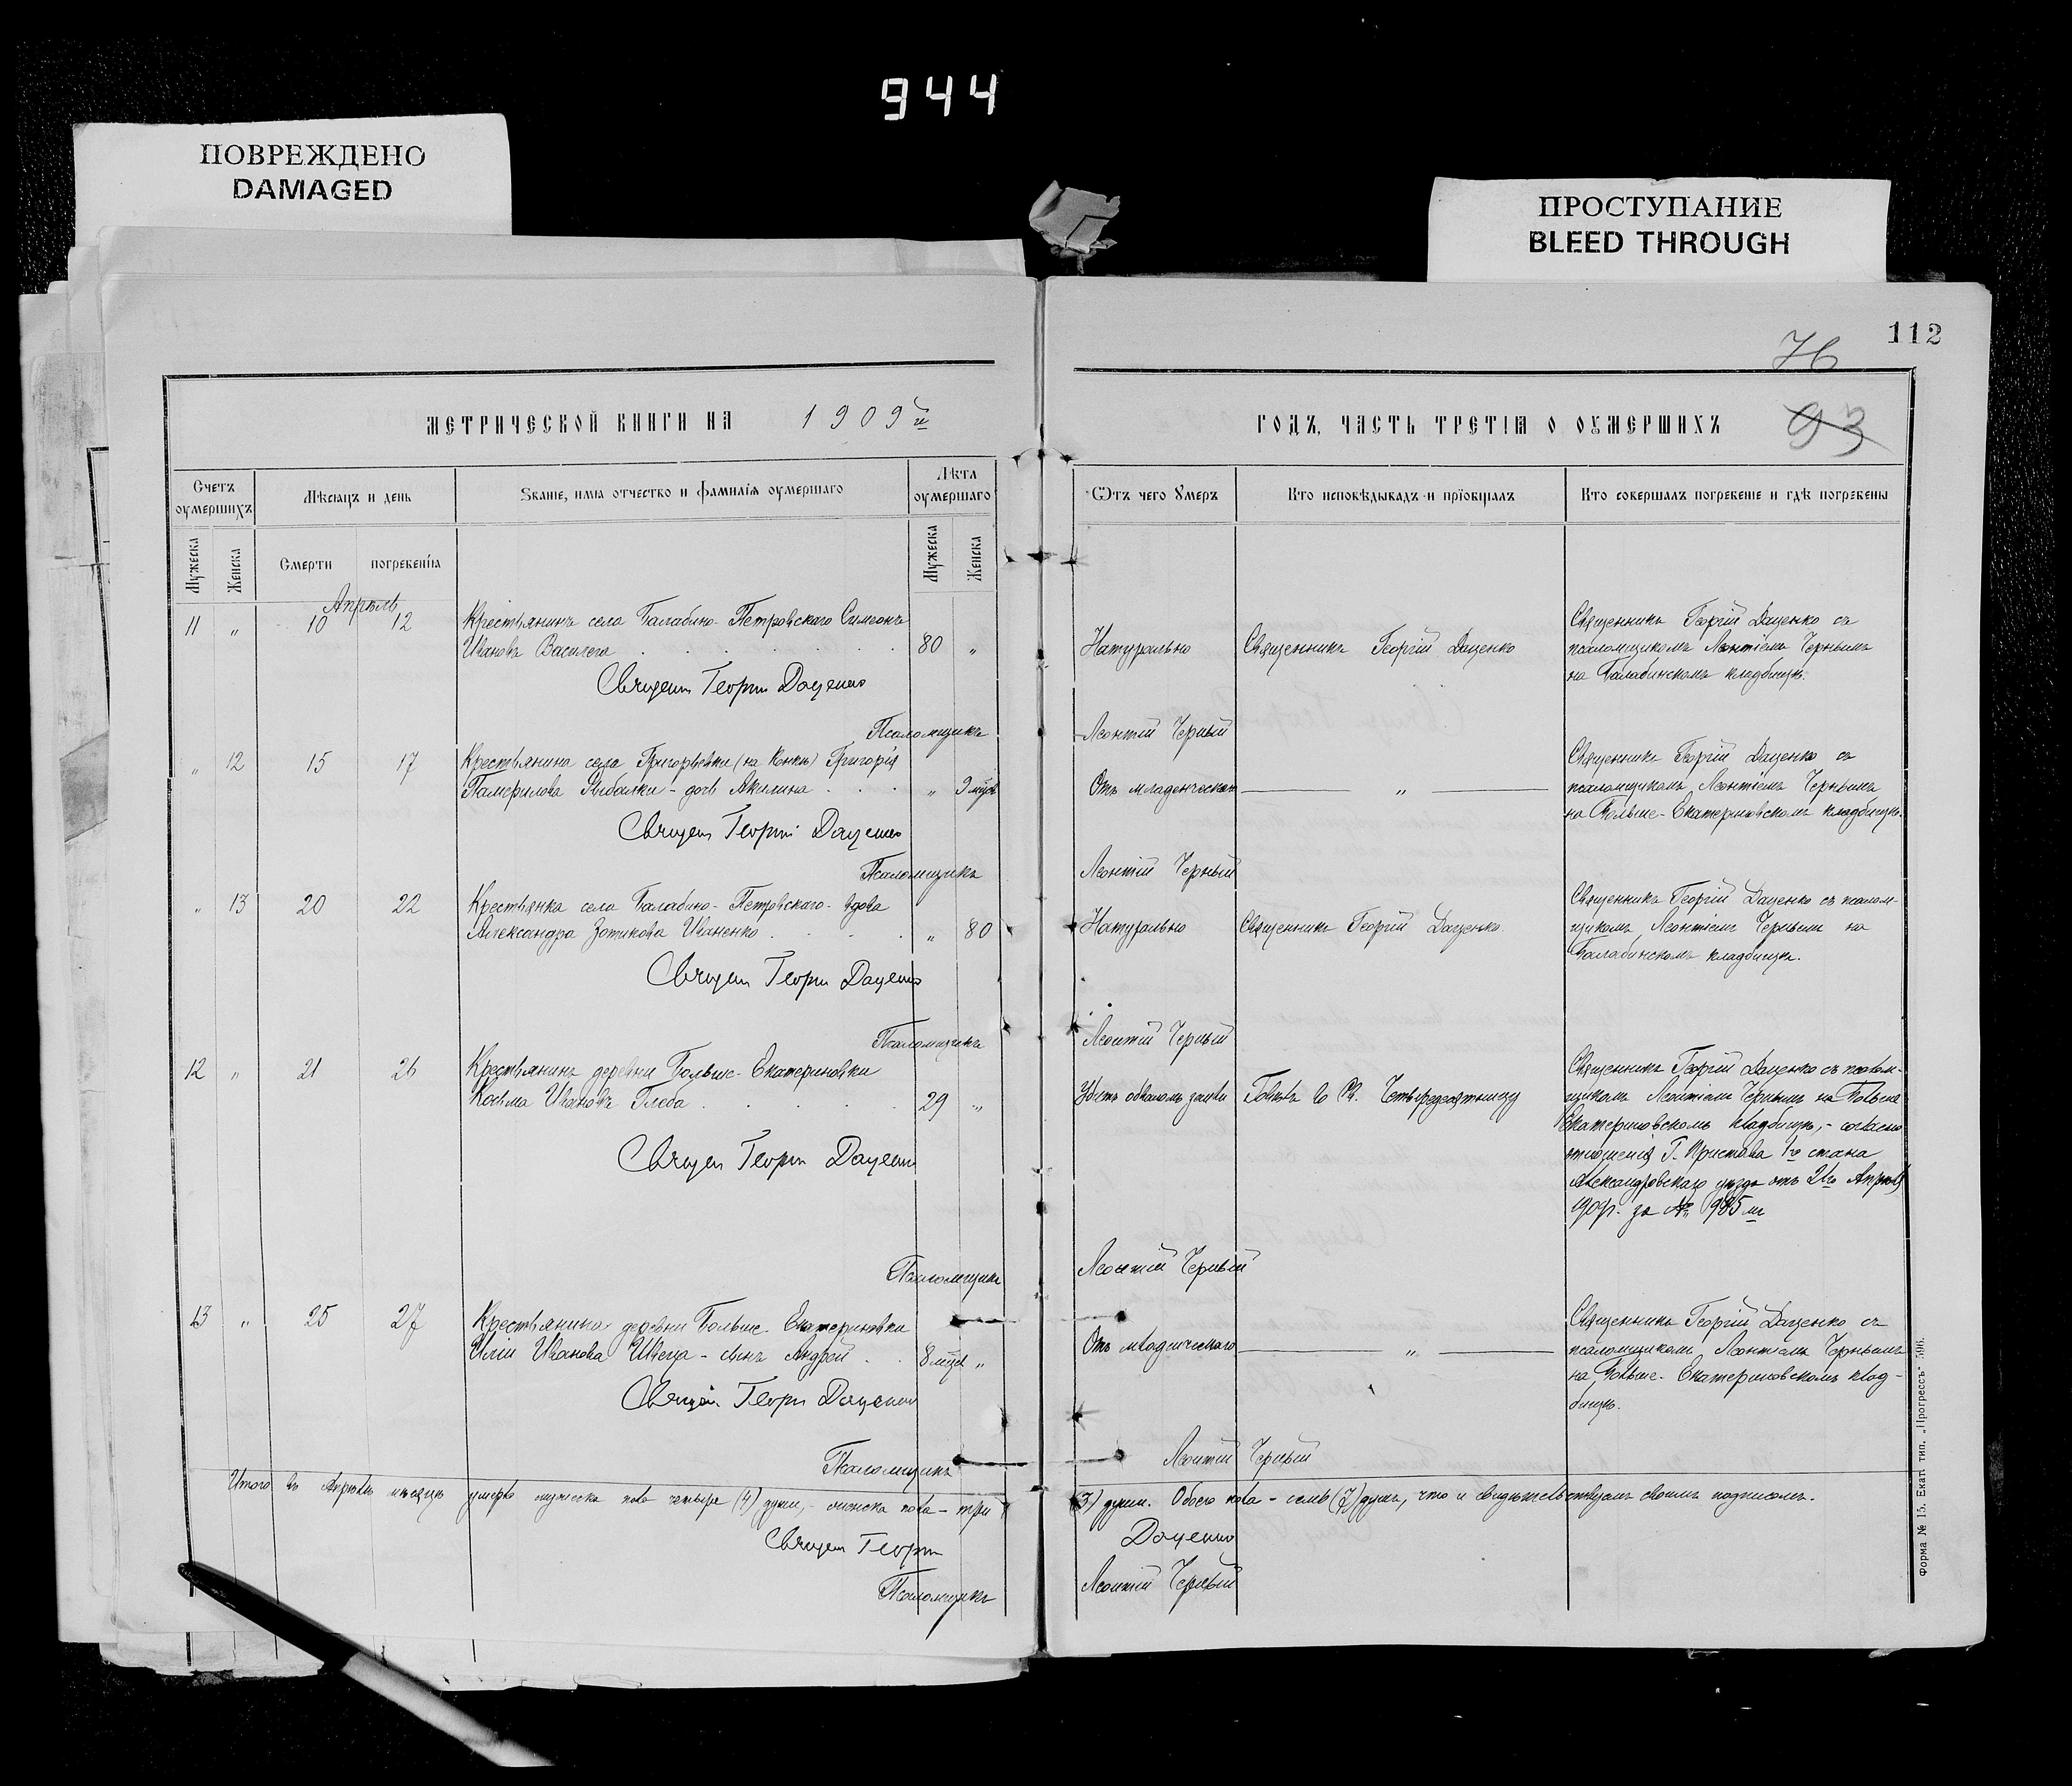 944
ПОВРЕЖДЕНО
DAMAGED
ПРОСТУПАНИЕ
BLEED THROUGH
112
76
93
МЕТРИЧЕСКОЙ КНИГИ НА 1909й
ГОДЪ, ЧАСТЬ ТРЕТІЯ О ОУМЕРШИХЪ
Счетъ оумершихъ
Мѣсяцъ и день
Званіе, имя отчество и фамилія оумершаго
Лѣта оумершаго
Отъ чего Умеръ
Кто исповѣдывалъ и пріобщалъ
Кто совершалъ погребеніе и гдѣ погребены
Мужеска
Женска
Смерти
погребенія
Мужеска
Женска
Апрѣль
11 " 10 12 Крестьянинъ села Балабино-Петровскаго Симеонъ
Ивановъ Василега 80 "
Натурально
Священникъ Георгій Даценко
Священникъ Георгій Даценко съ
псаломщикомъ Леонтіемъ Чернымъ
на Балабинскомъ кладбищѣ.
Священ Георгій Даценко
Псаломщикъ Леонтій Черный
" 12 15 17 Крестьянина села Григорьевки (на Конкѣ) Григорія
Памфилова Рыбалки - дочь Акилина " 9 мѣся
Отъ младенческой "
Священникъ Георгій Даценко съ
псаломщикомъ Леонтіемъ Чернымъ
на Больше-Екатериновскомъ кладбищѣ.
Священ Георгій Даценко
Псаломщикъ Леонтій Черный
" 13 20 22 Крестьянка села Балабино-Петровскаго - вдова
Александра Зотикова Иваненко " 80
Натурально
Священникъ Георгій Даценко
Священникъ Георгій Даценко съ псалом-
щикомъ Леонтіемъ Чернымъ на
Балабинскомъ кладбищѣ.
Священ Георгій Даценко
Псаломщикъ Леонтій Черный
12 " 21 26 Крестьянинъ деревни Больше-Екатериновки
Косьма Ивановъ Глеба 29 "
Убитъ обваломъ земли
Говѣлъ во Св. Четыредесятницу
Священникъ Георгій Даценко съ псалом-
щикомъ Леонтіемъ Чернымъ на Больше
Екатериновскомъ кладбищѣ, - согласно
отношенія Г. Пристава 1го стана
Александровскаго уѣзда отъ 21го Апрѣля
1909г. за № 985мъ
Священ Георгій Даценко
Псаломщикъ Леонтій Черный
13 " 25 27 Крестьянина деревни Больше-Екатериновки
Иліи Иванова Швеца - сынъ Андрей 8 мѣся "
Отъ младенческаго "
Священникъ Георгій Даценко съ
псаломщикомъ Леонтіемъ Чернымъ
на Больше-Екатериновскомъ клад-
бищѣ.
Священ Георгій Даценко
Псаломщикъ Леонтій Черный
Итого въ Апрѣлѣ мѣсяцѣ умерло мужеска пола четыре (4) души, - женска пола - три (3) души. Обоего пола - семь (7) душъ, что и свидѣтельствуемъ своимъ подписомъ.
Священ Георгій Даценко
Псаломщикъ Леонтій Черный
Форма № 15. Екат. тип. „Прогрессъ"